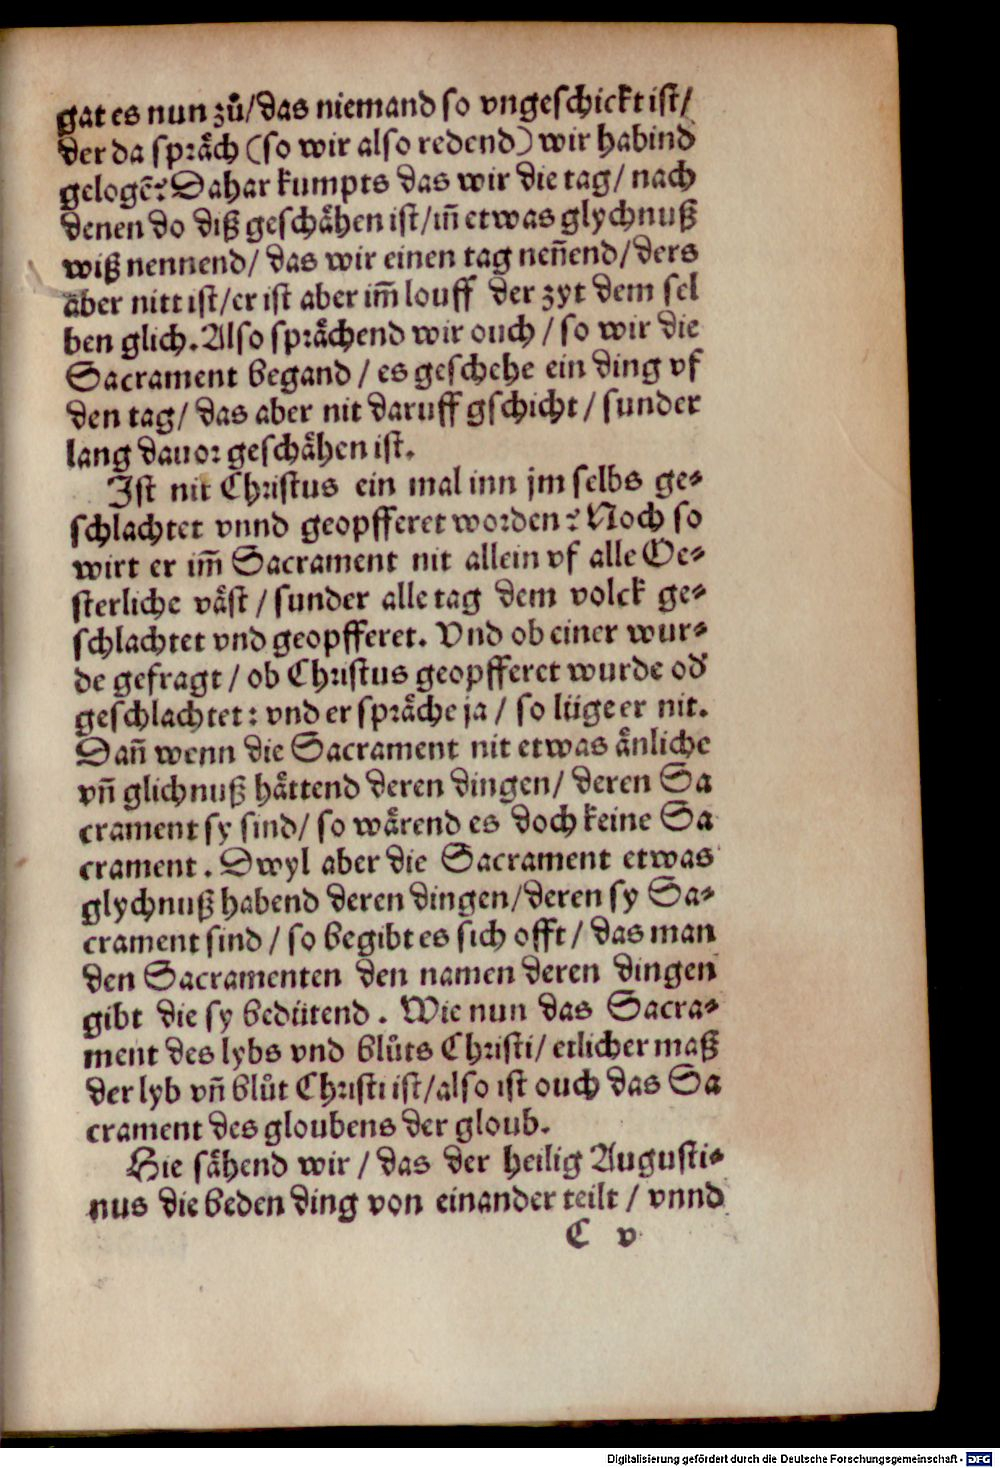 gat es nun zuͦ/das niemand so vngeschickt ist/
der da spraͤch (so wir also redend) wir habind
gelogẽ? Dahar kumpts das wir die tag/ nach
denen do diß geschaͤhen ist/im̃ etwas glychnuß
wiß nennend/ das wir einen tag nen̄end/ders
aber nitt ist/er ist aber im̃ louff der zyt dem sel
ben glich. Also spraͤchend wir ouch / so wir die
Sacrament begand / es geschehe ein ding vf
den tag/ das aber nit daruff gschicht / sunder
lang dauor geschaͤhen ist.
Ist nit Christus ein mal inn jm selbs ge⸗
schlachtet vnnd geopfferet worden? Noch so
wirt er im̃ Sacrament nit allein vf alle Oe⸗
sterliche vaͤst / sunder alle tag dem volck ge⸗
schlachtet vnd geopfferet. Vnd ob einer wur⸗
de gefragt / ob Christus geopfferet wurde od'
geschlachtet: vnd er spraͤche ja / so luͤge er nit.
Dan̄ wenn die Sacrament nit etwas aͤnliche
vn̄ glichnuß haͤttend deren dingen/ deren Sa
crament sy sind/ so waͤrend es doch keine Sa
crament. Dwyl aber die Sacrament etwas
glychnuß habend deren dingen/deren sy Sa⸗
crament sind / so begibt es sich offt / das man
den Sacramenten den namen deren dingen
gibt die sy beduͤtend. Wie nun das Sacra⸗
ment des lybs vnd bluͦts Christi/ etlicher maß
der lyb vn̄ bluͦt Christi ist/also ist ouch das Sa
crament des gloubens der gloub.
Hie saͤhend wir / das der heilig Augusti⸗
nus die beden ding von einander teilt / vnnd
C v
Digitalisierung gefördert durch die Deutsche Forschungsgemeinschaft - DFG